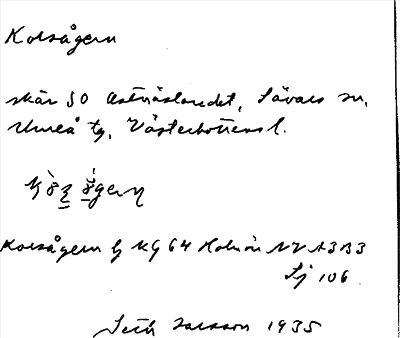 Korsågern
skär SO Ostnäslandet, Sävars sn,
Umeå tg, Västerbottens l.
Korsågern Gk 64 Holmön NV A3B3
Sj 106
Seth Larsson 1935